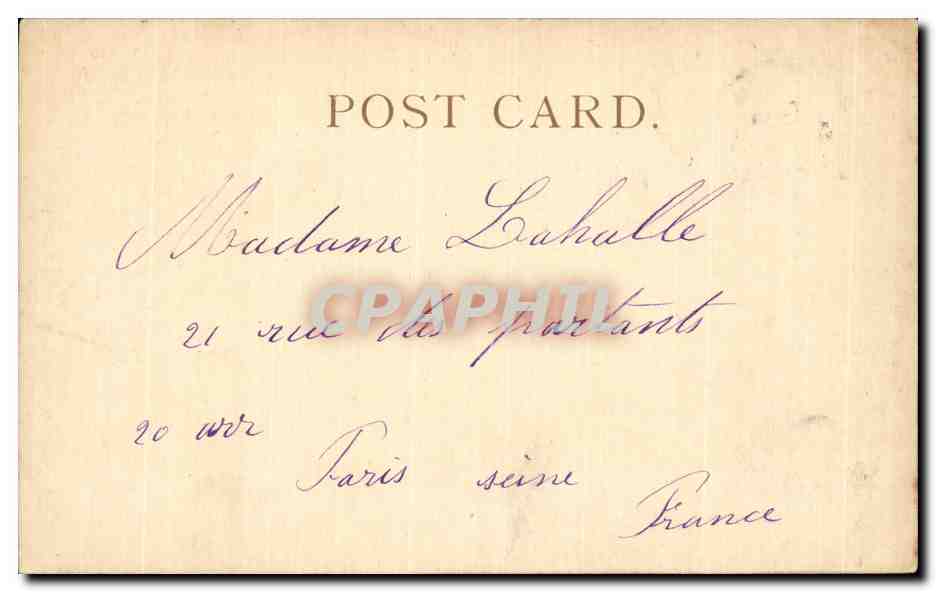 POST CARD.
Madame Lahalle
CPAPHIL
21 rue des partants
20 arr
Paris seine
France